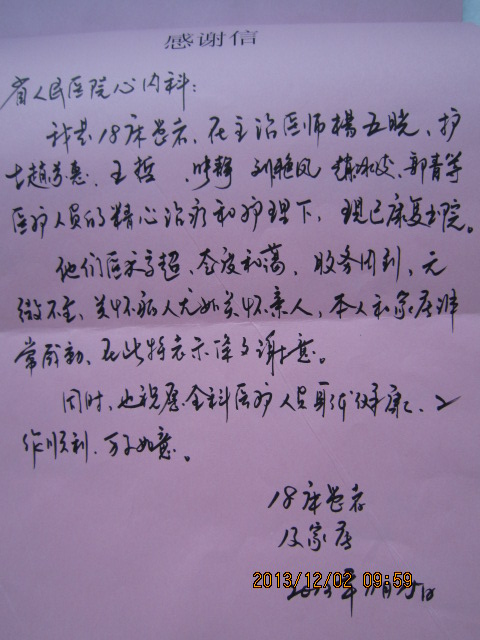 感谢信
省人民医院心内科：
我是18床患者，在主治医师楊五晓、护
士趙芳惠、王哲、叶静 刘艳凤 郭青等
医护人员的精心治疗和护理下，现已康复出院。
他们医术高超、态度和蔼、服务周到、无
微不至、关怀病人尤如关怀亲人，本人和家属非
常感动、在此特表示深的谢意。
同时，也祝愿全科医护人员身体健康、工
作顺利、万事如意。
18床患者
及家属
2013年11月 日
2013/12/02 09:59